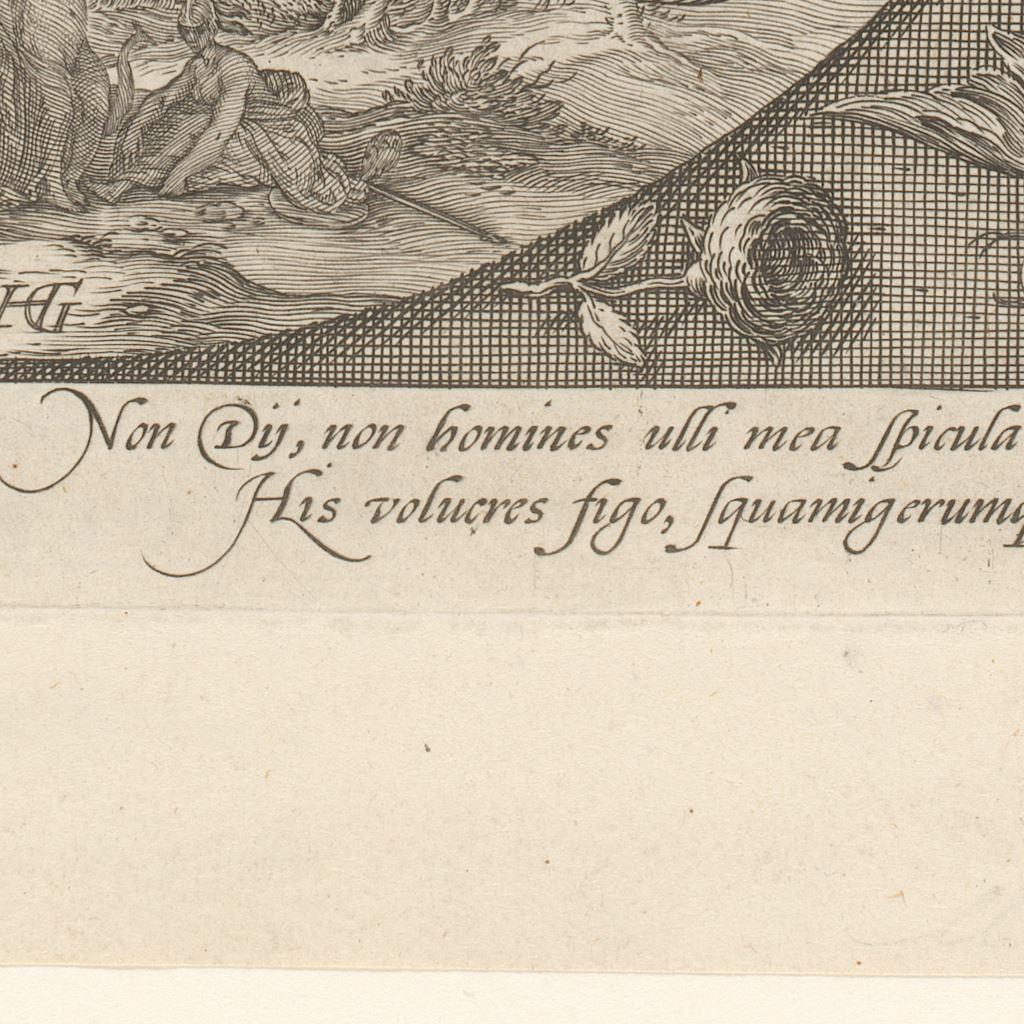 HG
Non Dij, non homines ulli mea spicula
His volucres figo, squamigerumq